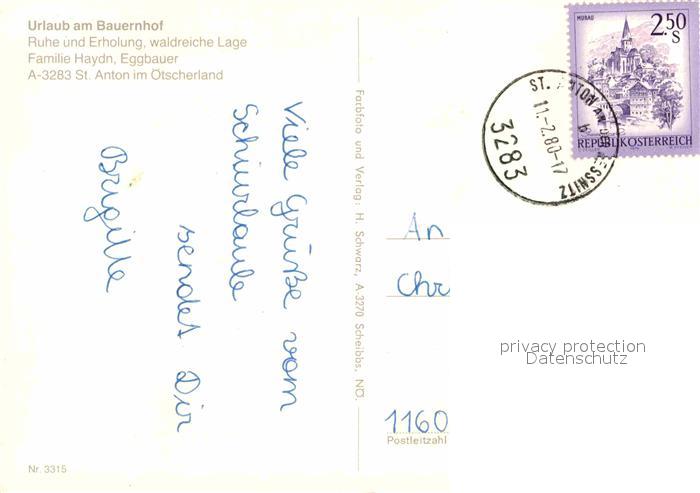 Urlaub am Bauernhof
Ruhe und Erholung, waldreiche Lage
Familie Haydn, Eggbauer
A-3283 St. Anton im Ötscherland
Viele Grüße vom
Schiurlaub
sendet Dir
Brigitte
Nr. 3315
Farbfoto und Verlag: H. Schwarz, A-3270 Scheibbs, NÖ.
MURAU
2.50
S
REPUBLIK ÖSTERREICH
ST. ANTON AN DER JESSNITZ
11.-2.80-17
b
3283
An
Chr
privacy protection
Datenschutz
1160
Postleitzahl